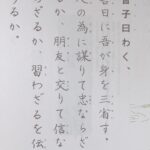 曾子曰わく、
吾日に吾が身を三省す。
の為に謀りて忠ならざ
るか、朋友と交りて信な
ざるか、習わざるを伝
るか。